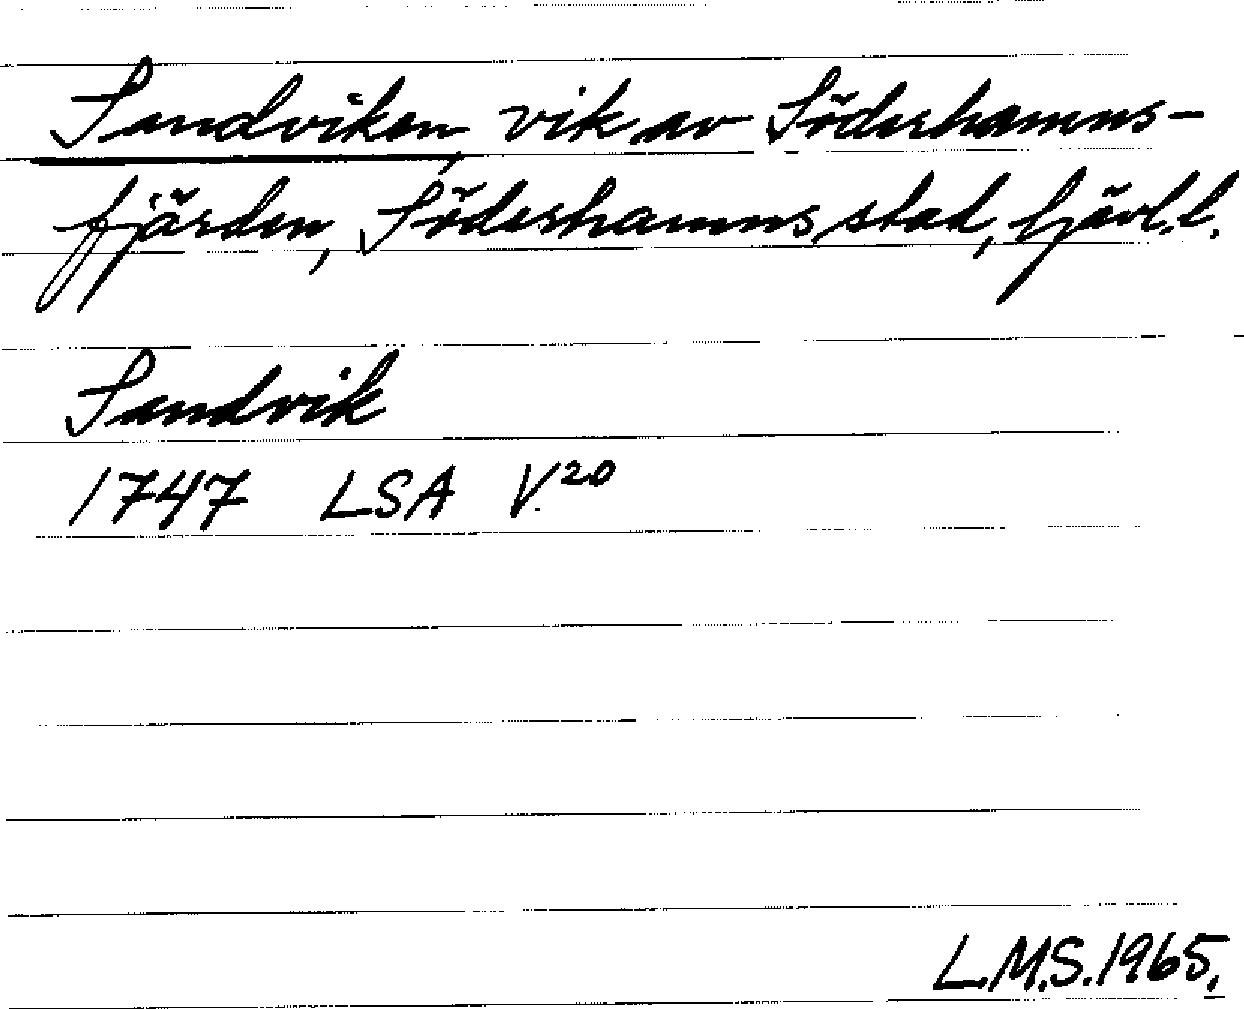 Sandviken, vik av Söderhamns-
fjärden, Söderhamns stad, Gävl.l.
Sandvik
1747 LSA V.20
L.M.S.1965.